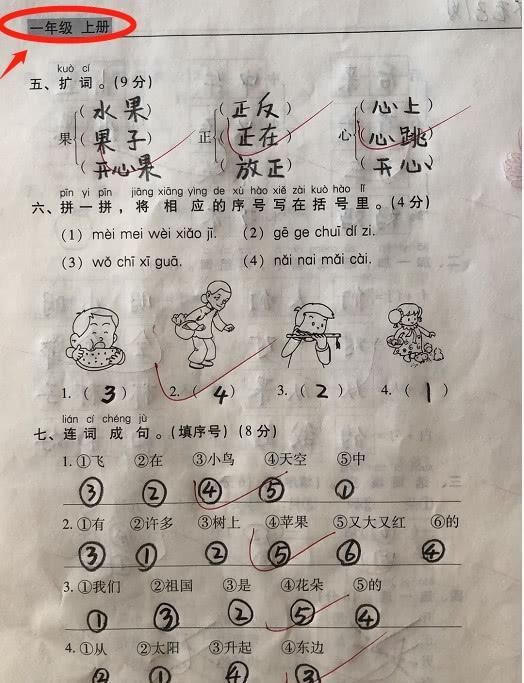 一年级 上册
kuò cí
五、扩词。(9分)
(水果) (正反) (心上)
果(果子) 正(正在) 心(心跳)
(开心果) (放正) (开心)
pīn yi pīn jiāng xiāng yìng de xù hào xiě zài kuò hào lǐ
六、拼一拼,将相应的序号写在括号里。(4分)
(1) mèi mei wèi xiǎo jī. (2) gē ge chuī dí zi.
(3) wǒ chī xī guā. (4) nǎi nai mǎi cài.
1.(3) 2.(4) 3.(2) 4.(1)
lián cí chéng jù
七、连词成句。(填序号)(8分)
1.①飞 ②在 ③小鸟 ④天空 ⑤中
③ ② ④ ⑤ ①
2.①有 ②许多 ③树上 ④苹果 ⑤又大又红 ⑥的
③ ① ② ⑤ ⑥ ④
3.①我们 ②祖国 ③是 ④花朵 ⑤的
① ③ ② ⑤ ④
4.①从 ②太阳 ③升起 ④东边
② ① ④ ③